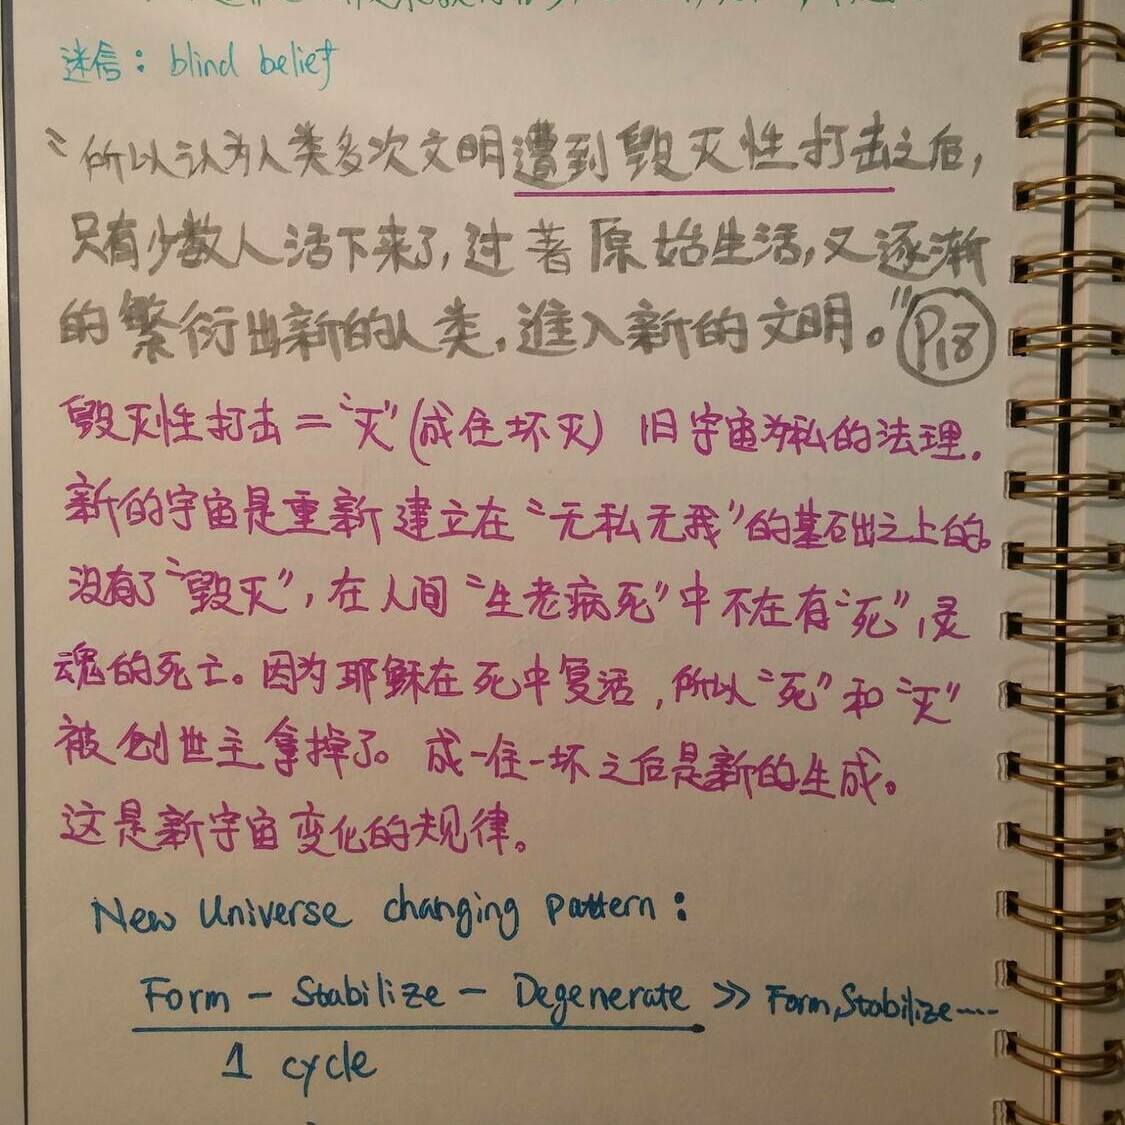 迷信: blind belief
"所以认为人类多次文明遭到毁灭性打击之后,
只有少数人活下来了,过著原始生活,又逐渐
的繁衍出新的人类,進入新的文明。" P18
毁灭性打击="灭"(成住坏灭) 旧宇宙为私的法理.
新的宇宙是重新建立在"无私无我"的基础之上的。
没有了"毁灭",在人间"生老病死"中不在有"死",灵
魂的死亡。因为耶稣在死中复活,所以"死"和"灭"
被创世主拿掉了。成-住-坏之后是新的生成。
这是新宇宙变化的规律。
New Universe changing pattern:
Form - Stabilize - Degenerate >> Form,Stabilize....
1 cycle